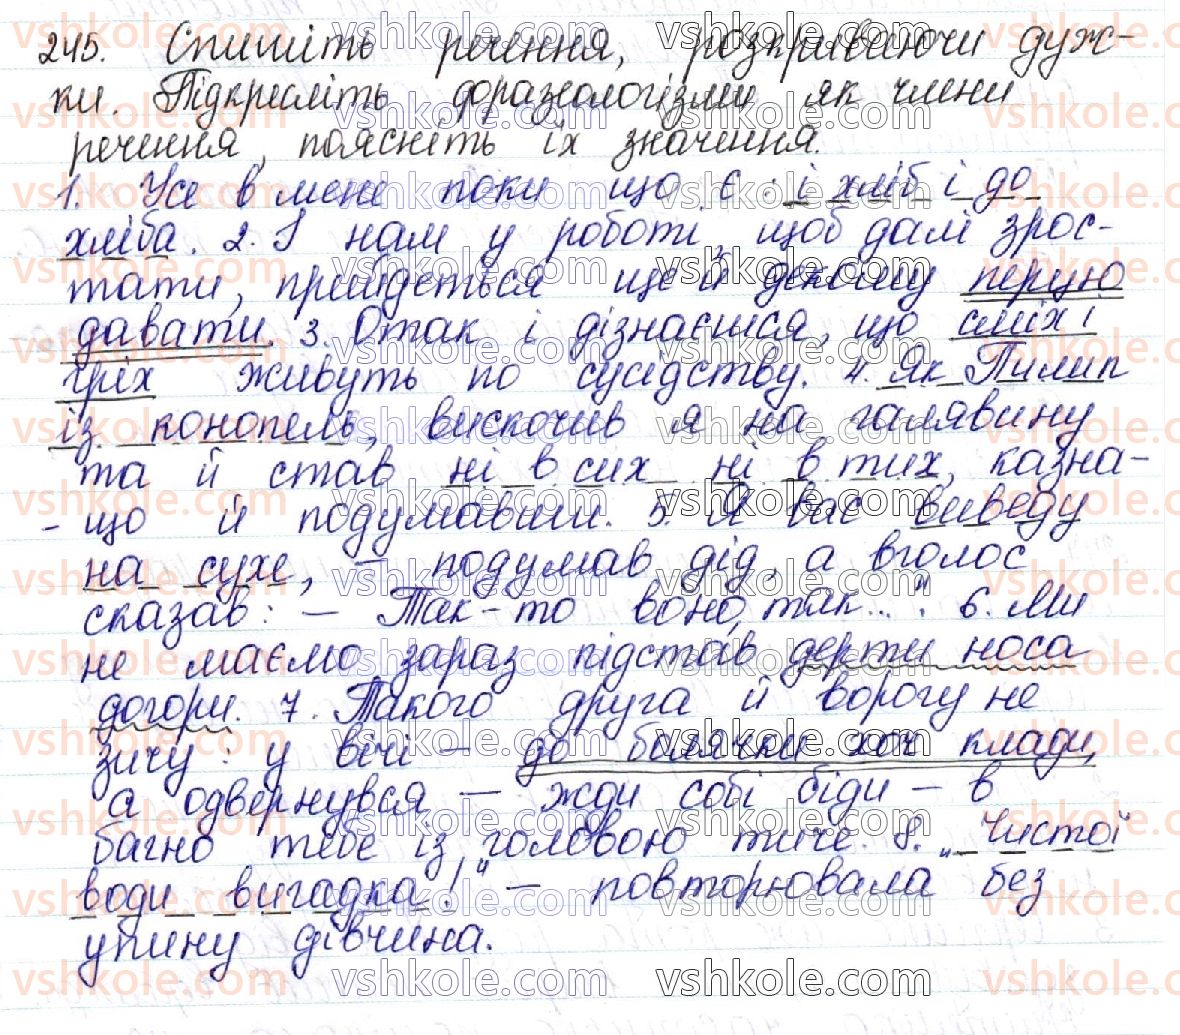 245. Спишіть речення, розкриваючи дуж-
ки. Підкресліть фразеологізми як члени
речення, поясніть їх значення.
1. Усе в мене поки що є: і хліб і до
хліба. 2. І нам у роботі, щоб далі зрос-
тати, прийдеться ще й декому перцю
давати. 3. Отак і дізнаєшся, що сміх і
гріх живуть по сусідству. 4. Як Пилип
із конопель, вискочив я на галявину
та й став ні в сих ні в тих, казна-
-що й подумавши. 5. Я вас виведу
на сухе, – подумав дід, а вголос
сказав: – Так-то воно, так...". 6. Ми
не маємо зараз підстав дерти носа
догори. 7. Такого друга й ворогу не
зичу: у вічі – до болячки хоч клади,
а одвернувся – жди собі біди – в
багно тебе із головою тиче. 8. „Чистої
води вигадка!" – повторювала без
упину дівчина.
vshkole.com